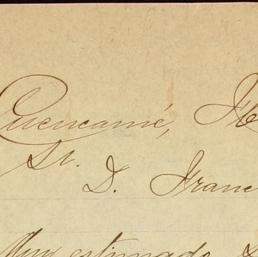 Cuencamé, Fe
Sr.
D. Franc
Muy estimado